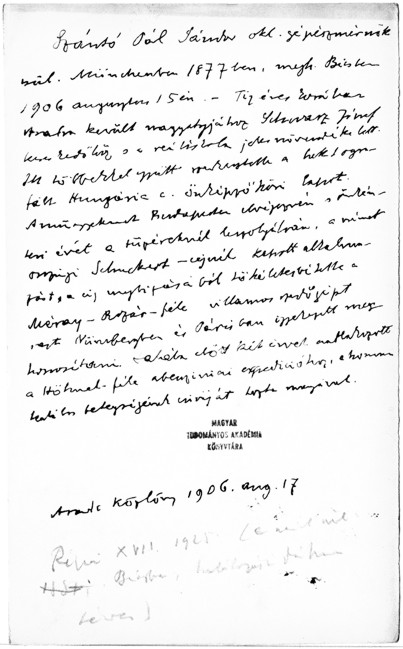 Szántó Pál Sándor okl. gépészmérnök
szül. Münchenben 1877ben, megh. Bécsben
1906 augusztus 15én. – Tíz éves korában
Aradra került nagybátyjához Schwarz József
kereskedőhöz s a reáliskola jeles növendéke lett.
Itt többekkel együtt szerkesztette a hektogra-
fált Hungária c. önképzőköri lapot.
A műegyetemet Budapesten elvégezvén s önkén-
tesi évét a tüzéreknél leszolgálván, a német
országi Schuckert-cégnél kapott alkalma-
zást, s a cég megbízásából tökéletesítette a
Méray-Rozár-féle villamos szedőgépet
s ezt Nürnbergben és Párisban igyekezett meg
honosítani. Halála előtt két évvel csatlakozott
a Holtmal-féle abessziniai expedícióhoz, ahonnan
halálos betegségének csiráját hozta magával.
MAGYAR
TUDOMÁNYOS AKADÉMIA
KÖNYVTÁRA
Aradi Közlöny 1906. aug. 17
XVII. 1925
Bécsben,
téves)